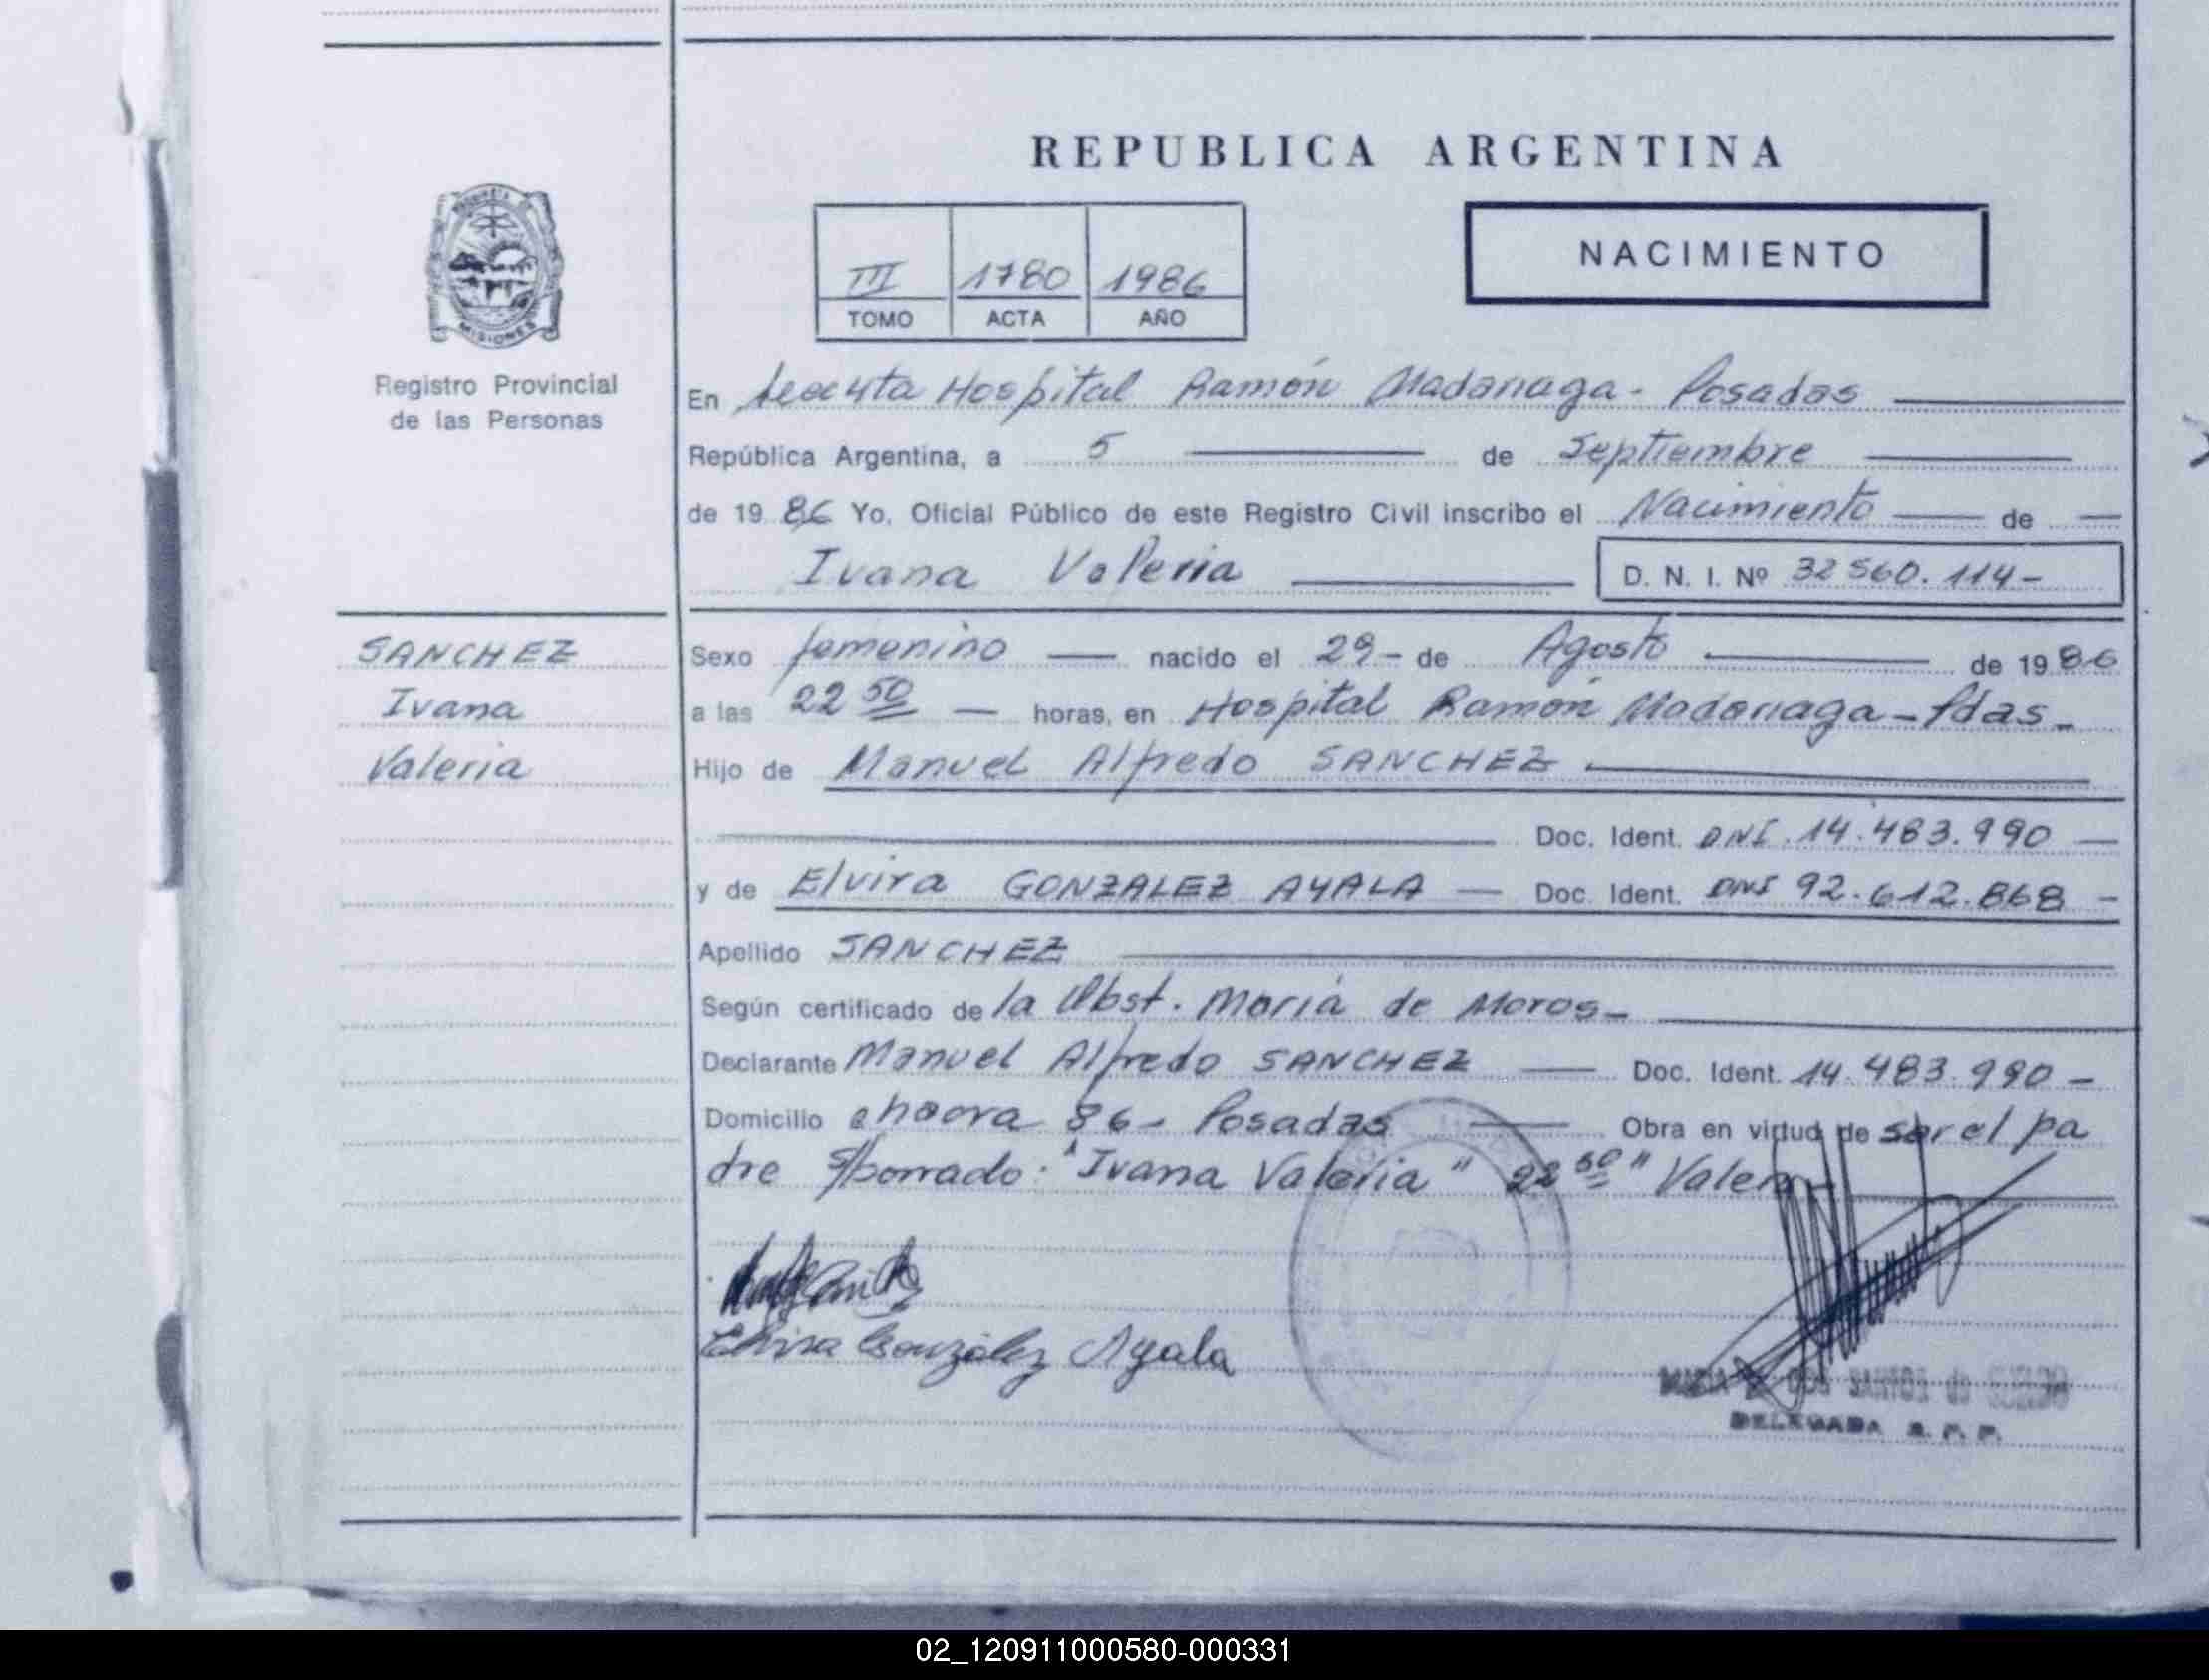 REPUBLICA ARGENTINA
NACIMIENTO
III 1780 1986
TOMO ACTA AÑO
MISIONES
Registro Provincial
de las Personas
En Hospital Ramón Madariaga - Posadas
República Argentina, a 5 de Septiembre
de 19 86 Yo, Oficial Público de este Registro Civil inscribo el Nacimiento de
Ivana Valeria
D. N. I. Nº 32 560.114-
SANCHEZ
Ivana
Valeria
Sexo femenino nacido el 29- de Agosto de 19 86
a las 22 50 horas, en Hospital Ramón Madariaga - Pdas-
Hijo de Manuel Alfredo SANCHEZ
Doc. Ident. DNI. 14.483.990
y de Elvira GONZALEZ AYALA Doc. Ident. DNI 92.612.868
Apellido SANCHEZ
Según certificado de la Obst. Maria de Moros-
Declarante Manuel Alfredo SANCHEZ Doc. Ident. 14.483.990-
Domicilio chacra 86- Posadas Obra en virtud de ser el pa
dre S/borrado: "Ivana Valeria" 22 50 " Valen
Elvira González Ayala
DELEGADA R. P. P.
02_120911000580-000331